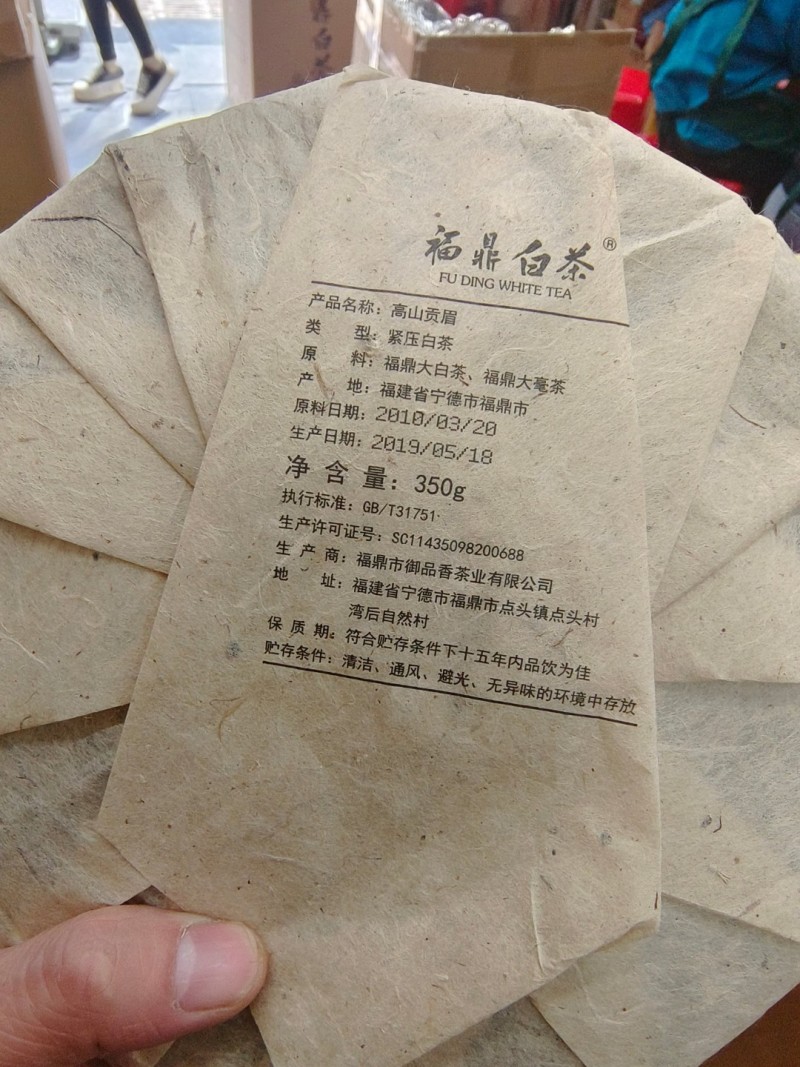 福鼎白茶
福鼎白茶®
FU DING WHITE TEA
产品名称：高山贡眉
类 型：紧压白茶
原 料：福鼎大白茶、福鼎大毫茶
产 地：福建省宁德市福鼎市
原料日期：2010/03/20
生产日期：2019/05/18
净含量：350g
执行标准：GB/T31751
生产许可证号：SC11435098200688
生产商：福鼎市御品香茶业有限公司
地 址：福建省宁德市福鼎市点头镇点头村
湾后自然村
保质期：符合贮存条件下十五年内品饮为佳
贮存条件：清洁、通风、避光、无异味的环境中存放